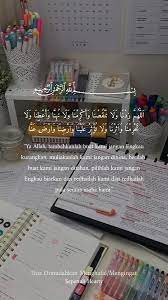 بِسْمِ اللهِ الرَّحْمٰنِ الرَّحِيْمِ
اَللّٰهُمَّ زِدْنَا وَلَا تَنْقُصْنَا وَأَكْرِمْنَا وَلَا تُهِنَّا وَأَعْطِنَا وَلَا
تَحْرِمْنَا وَآثِرْنَا وَلَا تُؤْثِرْ عَلَيْنَا وَأَرْضِنَا وَارْضَ عَنَّا
"Ya Allah, tambahkanlah buat kami jangan Engkau
kurangkan, muliakanlah kami jangan dihina, berilah
buat kami jangan ditahan, pilihlah kami jangan
Engkau biarkan dan redhailah kami dan redhailah
pula semua usaha kami."
Doa Dimudahkan Menghafal/Mengingat
Sepenuh Hearty